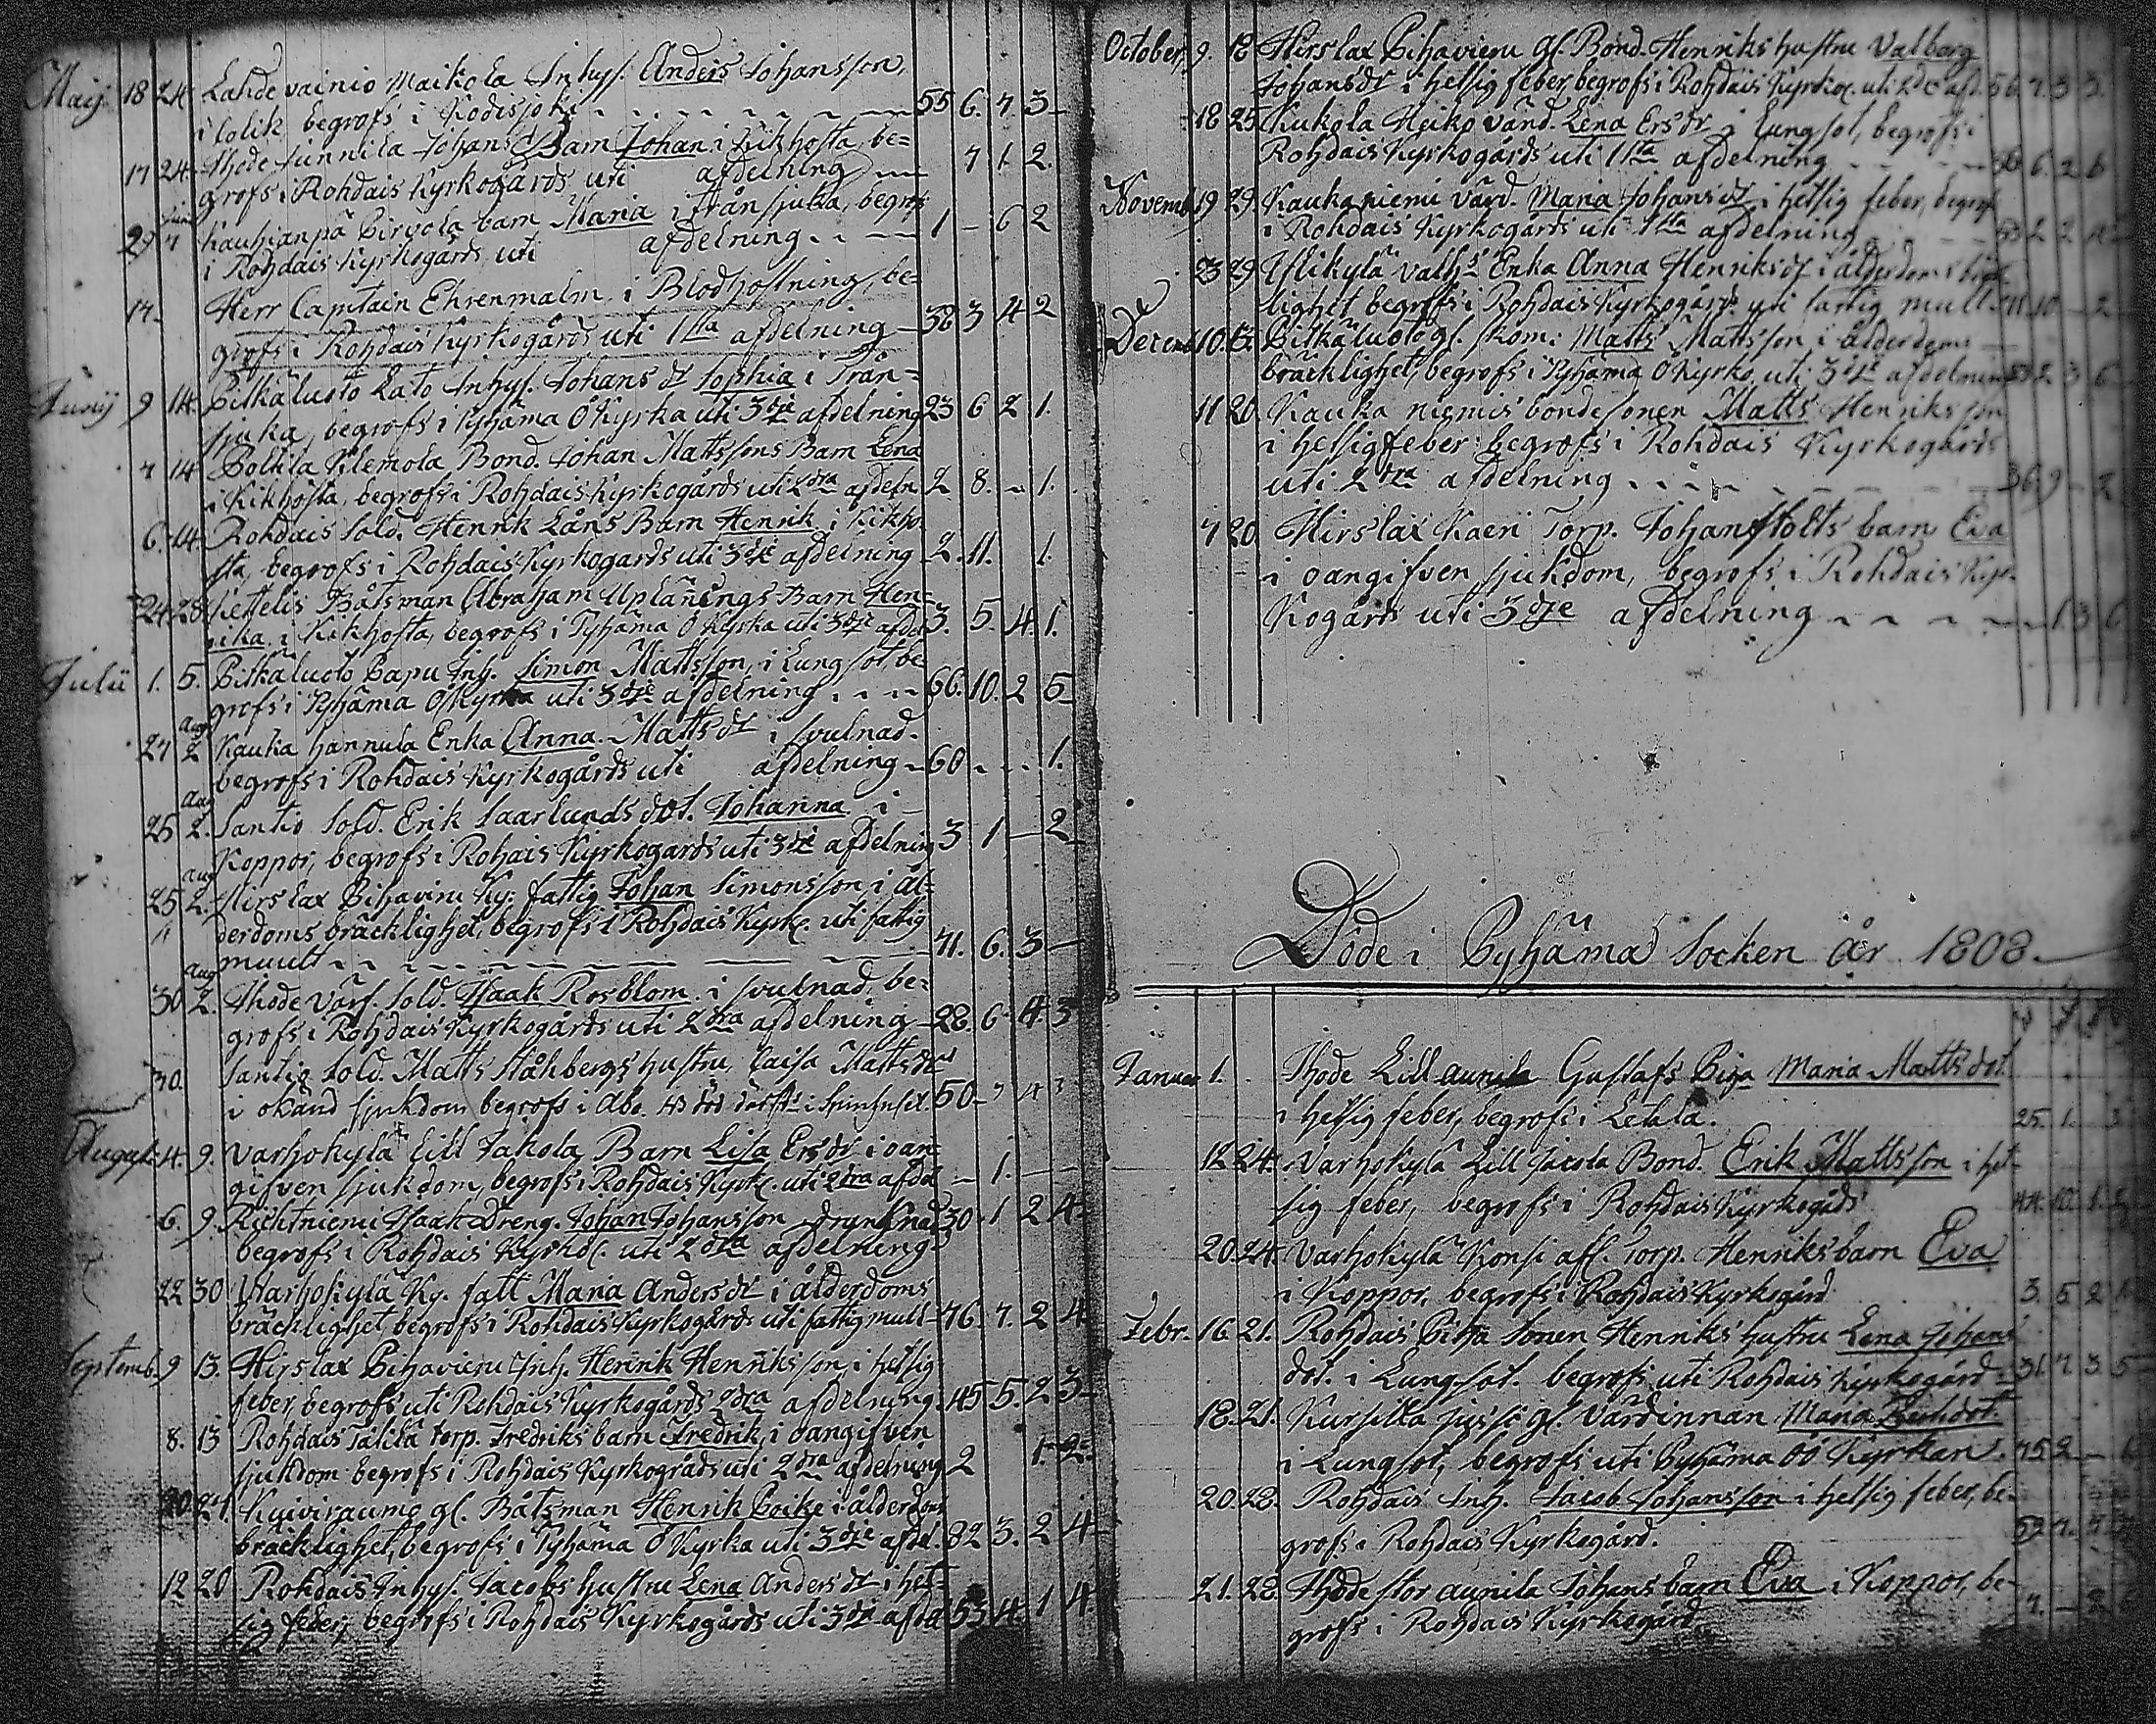 Maij 18 24 Lahdevainio Maikola Inhys. Anders Johansson,
i Colik begrofs i Kodisjoki 55 6. 7. 3
17 24 Ihode Sunnila Johans Barn Johan i Kikhosta, be=
grofs i Rohdais Kyrkogårds uti afdelning 7 1. 2.
29 7 Kauhianpä Pirvola barn Maria i Trånsjuka, begrofs
i Rohdais Kyrkogårds uti afdelning 1 - 6 2
17. Herr Capitain Ehrenmalm i Blodhostning, be=
grofs i Rohdais Kyrkogårds uti 1sta afdelning 38 3 4 2
Junij 9 14. Pitkäluoto Lato Inhys. Johans dr Sophia i Trån=
sjuka, begrofs i Pyhäma Ö Kyrka uti 3dje afdelning 23 6 2 1.
7 14 Poltila Klemola Bond. Johan Mattssons Barn Lena
i Kikhosta, begrofs i Rohdais Kyrkogårds uti 2dra afdeln 2 8. - 1.
6. 14 Rohdais Sold. Henrik Låns Barn Henrik i Kikho-
sta, begrofs i Rohdais Kyrkogards uti 3dje afdelning 2. 11. 1.
24 28 Kettelis Båtsman Abraham Uplänings Barn Hen=
rika i Kikhosta, begrofs i Pyhäma Ö Kyrka uti 3dje afdel 3. 5. 4. 1.
Julii 1. 5. Pitkäluoto Papu Inh. Simon Mattsson, i Lungsot, be
grofs i Pyhäma Ö Kyrka uti 3dje afdelning 66. 10. 2 5
Aug
27 2 Kauka Hannula Enka Anna Matts dr i svulnad.
begrofs i Rohdais Kyrkogårds uti afdelning 60 1.
Aug
25 2. Santio Sold. Erik Saarlunds dot. Johanna i
Koppor, begrofs i Rohais Kyrkogards uti 3dje afdelning 3 1 - 2
Aug
25 2. Hirslax Pihavieru Ky. fattig Johan Simonsson i ål=
derdoms bräcklighet, begrofs i Rohdais Kyrko. uti fattig
muult 71. 6. 3
Aug
30 2. Ihode Värf. Sold. Isaak Rosblom i svulnad, be=
grofs i Rohdais Kyrkogårds uti 2dra afdelning 28. 6 4 3
30. Santio Sold. Matts Ståhbergs hustru, Caisa Mattsdr
i okänd sjukdom begrofs i Abo. 50 7 4 3
August 4. 9. Varhokylä Lill Jakola Barn Lisa Ersdr i oan-
gifven sjukdom, begrofs i Rohdais Kyrko. uti 2dra afdel - 1. -
6. 9. Rihtniemi Isaak Dreng. Johan Johansson drunknad 30. 1 2 4
begrofs i Rohdais Kyrko. uti 2dra afdelning
22 30 Warhokylä Ky. fatt Maria Anders dr i ålderdoms
bräcklighet, begrofs i Rohdais Kyrkogårds uti fattig mull 76. 7. 2 4
Septemb. 9 13. Hirslax Pihavieru Inh. Henrik Henriksson, i hetsig
feber, begrofs uti Rohdais Kyrkogårds 2dra afdelning 45 5. 2 3
8. 13 Rohdais Talila torp. Fredriks barn Fredrik i oangifven
sjukdom begrofs i Rohdais Kyrkogråds uti 2dra afdelning 2 1. 2.
20 27. Kuiviraumo gl. Båtsman Henrik Poike i ålderdoms
bräcklighet, begrofs i Pyhäma Ö Kyrka uti 3dje afdel. 82 3. 2 4
12 20 Rohdais Inhys. Jacobs hustru Lena Anders dr i het-
sig feber, begrofs i Rohdais Kyrkogårds uti 3dje afdel 53 4. 1 4
October 9. 18 Hirslax Pihavieru Gl. Bond. Henriks hustru Valborg
Johansdr i hetsig feber, begrofs i Rohdais Kyrko. uti 2 afd. 56. 7. 3 3.
18 25 Kukola Heiko Värd. Lena Ersdr i Lungsot, begrofs i
Rohdais Kyrkogårds uti 1sta afdelning 6. 2 6
Novemb 19 29. Kaukaniemi Värd. Maria Johansdr i hetsig feber, begrof
i Rohdais Kyrkogårds uti 1sta afdelning 2 2
23 29 Ylikylä Enka Anna Henriksdr i ålderdoms bräck-
lighet begrofs i Rohdais Kyrkogårds uti fattig mull. 71 10 - 2
Decemb 10. 13. Pitkäluoto gl. Matts Mattsson i ålderdoms
bräcklighet, begrofs i Pyhäma Ö Kyrko uti 3dje afdelning 2 3 6
11 20. Kauka niemis bondesonen Matts Henriksson
i hetsig feber begrofs i Rohdais Kyrkogårds
uti 2dra afdelning 36. 9 - 2
7 20 Hirslax Kaeri Torp. Johan Stolts barn Eva
i oangifven sjukdom, begrofs i Rohdais Kyr-
kogårds uti 3dje afdelning 1 3 6
Döde i Pyhäma Socken år 1808.
Januar 1. Ihode Lill aunila Gustafs Piga Maria Matts dot.
i hetsig feber, begrofs i Letala. 25. 1. 3
18 24. Varhokylä Lill Jacola Bond. Erik Mattsson i het-
sig feber, begrofs i Rohdais Kyrkogårds 44. 10. 1.
20. 24. Varhokylä Konsi aff. Torp. Henriks barn Eva
i Koppor, begrofs i Rohdais Kyrkogård 3. 5 2
Febr. 16. 21. Rohdais Pitkä Sonen Henriks hustru Lena Johans
dot. i Lungsot. begrofs uti Rohdais Kyrkogård 31. 7. 3 5
18. 21. Kursilla Jussi gl. Värdinnan Maria
i Lungsot, begrofs uti Pyhäma Öö Kyrkan. 75 2
20. 28. Rohdais Inh. Jacob Johansson i hetsig feber, be-
grofs i Rohdais Kyrkogård. 59 7. 7
21. 28. Ihode stor aunila Johans barn Eva i Koppor, be-
grofs i Rohdais Kyrkogård 7. -